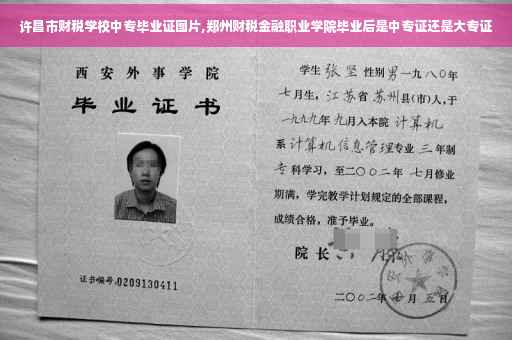 许昌市财税学校中专毕业证图片,郑州财税金融职业学院毕业后是中专证还是大专证
西安外事学院
毕业证书
证书编号:0209130411
学生 张坚 性别 男 一九八〇年
七月生，江苏省 苏州县(市)人，于
一九九九年 九月入本院 计算机
系 计算机信息管理专业 三 年制
专科学习，至二〇〇二年 七月修业
期满，学完教学计划规定的全部课程，
成绩合格，准予毕业。
院长
二〇〇二年 月 五日